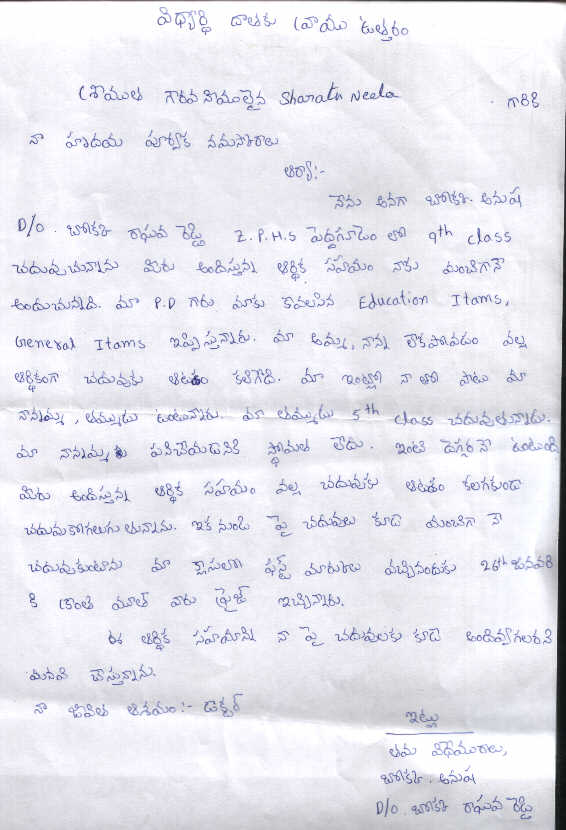 విద్యార్థి దాతకు వ్రాయు ఉత్తరం
శ్రీయుత గౌరవనీయులైన Sharath Neela గారికి
నా హృదయ పూర్వక నమస్కారాలు
ఆర్యా:-
నేను అనగా బోకాక. అనుష
D/o. బోకాక రాఘవ రెడ్డి Z.P.H.S పెద్దగూడెం లో 9th class
చదువుచున్నాను మీరు అందిస్తున్న ఆర్థిక సహయం నాకు మంచిగానే
అందుచున్నది. మా P.D గారు మాకు కావలసిన Education Itams,
General Itams ఇప్పిస్తున్నారు. మా అమ్మ, నాన్న లేకపోవడం వల్ల
ఆర్థికంగా చదువుకు ఆటకం కలిగేది. మా ఇంట్లో నా తో పాటు మా
నానమ్మ, తమ్ముడు ఉంటున్నారు. మా తమ్ముడు 5th class చదువుతున్నాడు.
మా నానమ్మకు పనిచేయడానికి స్థోమత లేదు. ఇంటి దగ్గరనే ఉంటుంది
మీరు అందిస్తున్న ఆర్థిక సహయం వల్ల చదువుకు ఆటకం కలగకుండా
చదువుకోగలుగుతున్నాను. ఇక నుండి పై చదువులు కూడా మంచిగానే
చదువుకుంటాను మా క్లాసులో ఫస్ట్ మార్కులు వచ్చినందుకు 26th జనవరి
కి క్రాంతి యూత్ వారు ప్రైజ్ ఇచ్చినారు.
ఈ ఆర్థిక సహయాన్ని నా పై చదువులకు కూడా అందివ్వగలరని
మనవి చేస్తున్నాను.
నా జీవిత ఆశయం:- డాక్టర్
ఇట్లు
తమ విధేయురాలు,
బోకాక. అనుష
D/o. బోకాక రాఘవ రెడ్డి